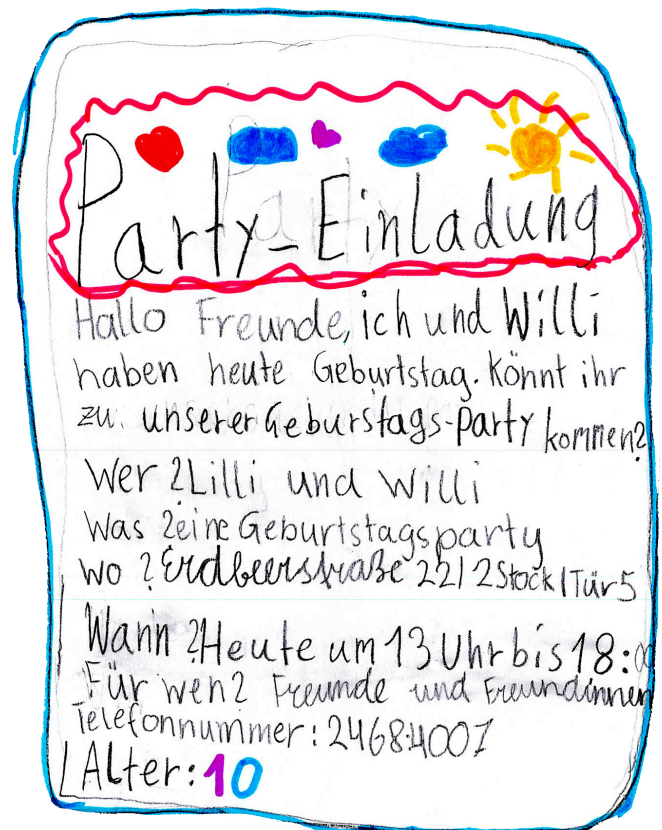 Party-Einladung
Hallo Freunde, ich und Willi
haben heute Geburtstag. Könnt ihr
zu unserer Geburstags-party kommen?
Wer? Lilli und Willi
Was? eine Geburtstagsparty
Wo? Erdbeerstraße 22/2Stock/Tür5
Wann? Heute um 13 Uhr bis 18:00
Für wen? Freunde und Freundinnen
Telefonnummer: 2468-4007
Alter: 10